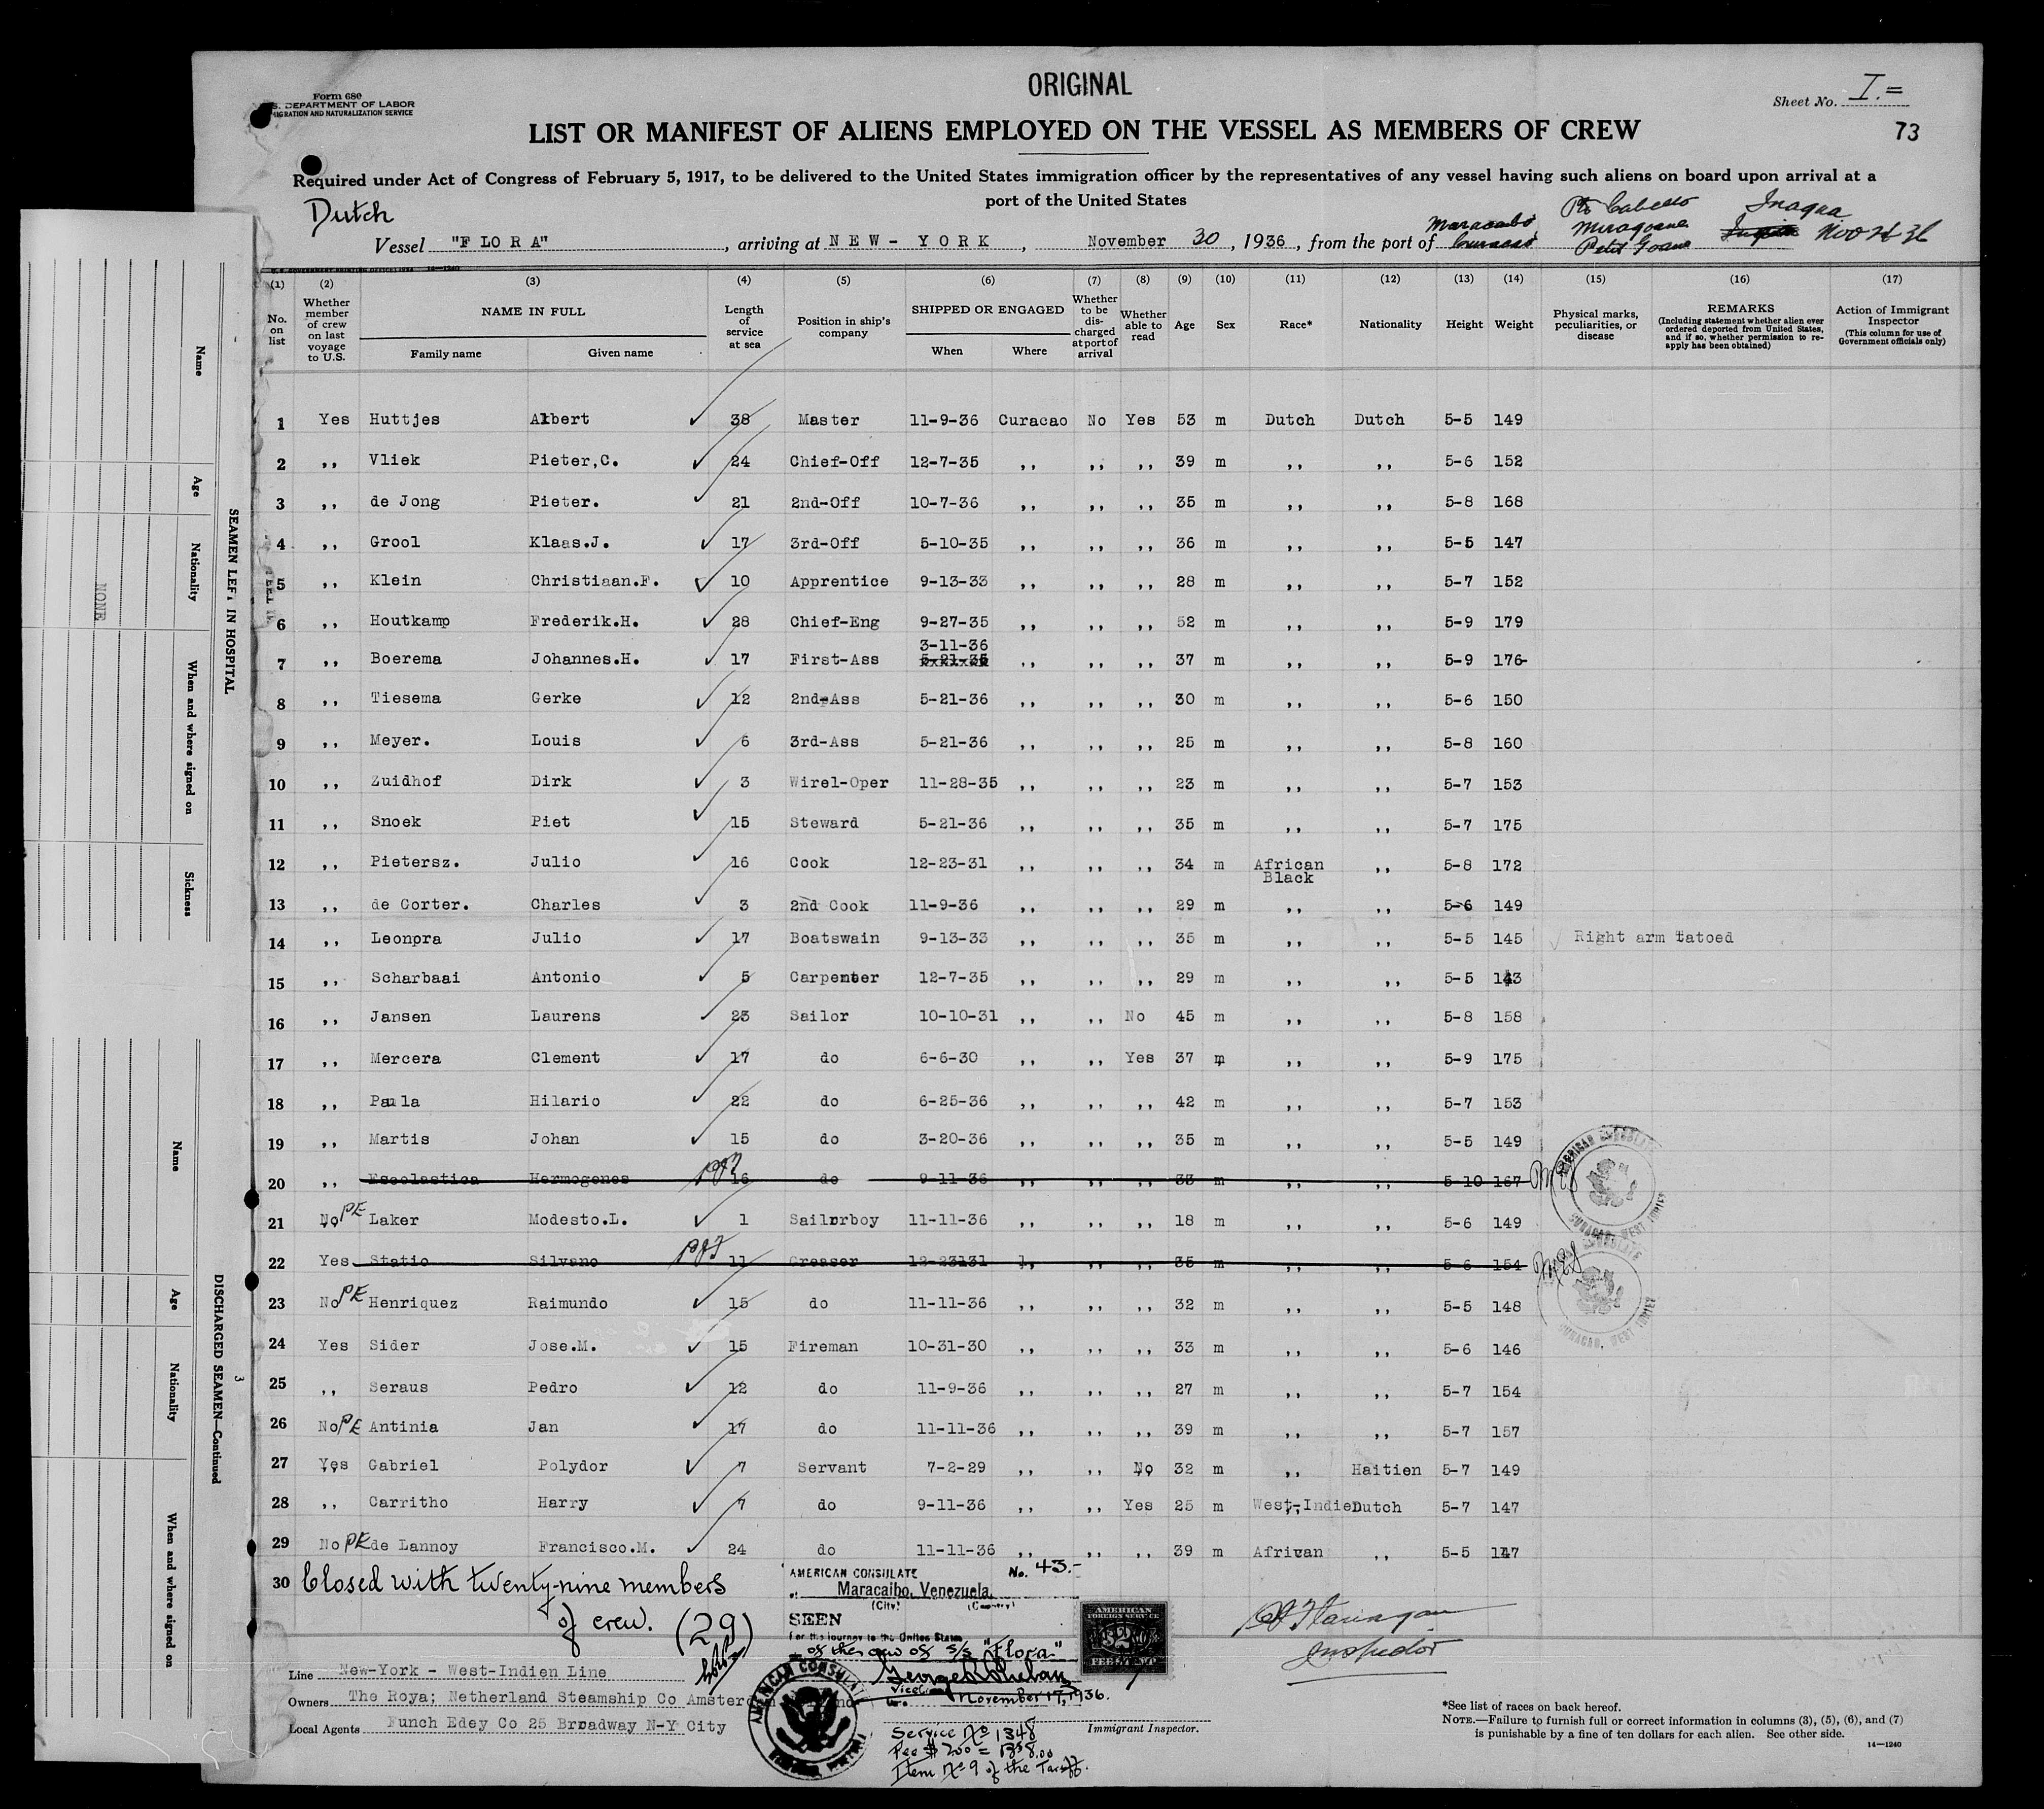 ORIGINAL
Form 680
S. DEPARTMENT OF LABOR
IGRATION AND NATURALIZATION SERVICE
Sheet No. I.=
73
LIST OR MANIFEST OF ALIENS EMPLOYED ON THE VESSEL AS MEMBERS OF CREW
Required under Act of Congress of February 5, 1917, to be delivered to the United States immigration officer by the representatives of any vessel having such aliens on board upon arrival at a
port of the United States
Dutch
Pto Cabello Inagua
Maracaibo Miragoane
Vessel "FLORA", arriving at NEW-YORK, November 30, 1936, from the port of Curacao Petit Goave
(1) (2) (3) (4) (5) (6) (7) (8) (9) (10) (11) (12) (13) (14) (15) (16) (17)
No. on list
Whether member of crew on last voyage to U.S.
NAME IN FULL
Family name Given name
Length of service at sea
Position in ship's company
SHIPPED OR ENGAGED
When Where
Whether to be discharged at port of arrival
Whether able to read
Age Sex Race* Nationality Height Weight
Physical marks, peculiarities, or disease
REMARKS
(Including statement whether alien ever ordered deported from United States, and if so, whether permission to reapply has been obtained)
Action of Immigrant Inspector
(This column for use of Government officials only)
1 Yes Huttjes Albert 38 Master 11-9-36 Curacao No Yes 53 m Dutch Dutch 5-5 149
2 ,, Vliek Pieter,C. 24 Chief-Off 12-7-35 ,, ,, ,, 39 m ,, ,, 5-6 152
3 ,, de Jong Pieter. 21 2nd-Off 10-7-36 ,, ,, ,, 35 m ,, ,, 5-8 168
4 ,, Grool Klaas.J. 17 3rd-Off 5-10-35 ,, ,, ,, 36 m ,, ,, 5-5 147
5 ,, Klein Christiaan.F. 10 Apprentice 9-13-33 ,, ,, ,, 28 m ,, ,, 5-7 152
6 ,, Houtkamp Frederik.H. 28 Chief-Eng 9-27-35 ,, ,, ,, 52 m ,, ,, 5-9 179
7 ,, Boerema Johannes.H. 17 First-Ass 3-11-36 5-21-36 ,, ,, ,, 37 m ,, ,, 5-9 176-
8 ,, Tiesema Gerke 12 2nd-Ass 5-21-36 ,, ,, ,, 30 m ,, ,, 5-6 150
9 ,, Meyer. Louis 6 3rd-Ass 5-21-36 ,, ,, ,, 25 m ,, ,, 5-8 160
10 ,, Zuidhof Dirk 3 Wirel-Oper 11-28-35 ,, ,, ,, 23 m ,, ,, 5-7 153
11 ,, Snoek Piet 15 Steward 5-21-36 ,, ,, ,, 35 m ,, ,, 5-7 175
12 ,, Pietersz. Julio 16 Cook 12-23-31 ,, ,, ,, 34 m African Black ,, 5-8 172
13 ,, de Gorter. Charles 3 2nd Cook 11-9-36 ,, ,, ,, 29 m ,, ,, 5-6 149
14 ,, Leonpra Julio 17 Boatswain 9-13-33 ,, ,, ,, 35 m ,, ,, 5-5 145 Right arm tatoed
15 ,, Scharbaai Antonio 5 Carpenter 12-7-35 ,, ,, ,, 29 m ,, ,, 5-5 143
16 ,, Jansen Laurens 23 Sailor 10-10-31 ,, ,, No 45 m ,, ,, 5-8 158
17 ,, Mercera Clement 17 do 6-6-30 ,, ,, Yes 37 m ,, ,, 5-9 175
18 ,, Paula Hilario 22 do 6-25-36 ,, ,, ,, 42 m ,, ,, 5-7 153
19 ,, Martis Johan 15 do 3-20-36 ,, ,, ,, 35 m ,, ,, 5-5 149
20 ,, Escolastica Hermogenes 16 do 9-11-36 ,, ,, ,, 33 m ,, ,, 5-10 167
21 No PE Laker Modesto.L. 1 Sailorboy 11-11-36 ,, ,, ,, 18 m ,, ,, 5-6 149
22 Yes Statio Silvano 11 Greaser 12-23131 ,, ,, ,, 35 m ,, ,, 5-6 154
23 No PE Henriquez Raimundo 15 do 11-11-36 ,, ,, ,, 32 m ,, ,, 5-5 148
24 Yes Sider Jose.M. 15 Fireman 10-31-30 ,, ,, ,, 33 m ,, ,, 5-6 146
25 ,, Seraus Pedro 12 do 11-9-36 ,, ,, ,, 27 m ,, ,, 5-7 154
26 No PE Antinia Jan 17 do 11-11-36 ,, ,, ,, 39 m ,, ,, 5-7 157
27 Yes Gabriel Polydor 7 Servant 7-2-29 ,, ,, No 32 m ,, Haitien 5-7 149
28 ,, Carritho Harry 7 do 9-11-36 ,, ,, Yes 25 m West-Indien Dutch 5-7 147
29 No PE de Lannoy Francisco.M. 24 do 11-11-36 ,, ,, ,, 39 m African ,, 5-5 147
30 Closed with twenty-nine members
of crew. (29)
AMERICAN CONSULATE No. 43.-
Maracaibo, Venezuela.
(City) (Country)
SEEN
For the journey to the United States
of the crew of S/S "Flora"
Vice
November 17, 1936.
AMERICAN FOREIGN SERVICE
$2
FEE STAMP
Inspector
Line New-York - West-Indien Line
Owners The Roya; Netherland Steamship Co Amsterdam
Local Agents Funch Edey Co 25 Broadway N-Y City
Service No 1348
Fee $2.00 = Bs8.00
Item No 9 of the Tariff.
Immigrant Inspector.
*See list of races on back hereof.
NOTE.—Failure to furnish full or correct information in columns (3), (5), (6), and (7)
is punishable by a fine of ten dollars for each alien. See other side.
14—1240
AMERICAN CONSULATE
CURACAO, WEST INDIES
SEAMEN LEFT IN HOSPITAL
Name
Age
Nationality
When and where signed on
Sickness
NONE
DISCHARGED SEAMEN—Continued
3
Name
Age
Nationality
When and where signed on